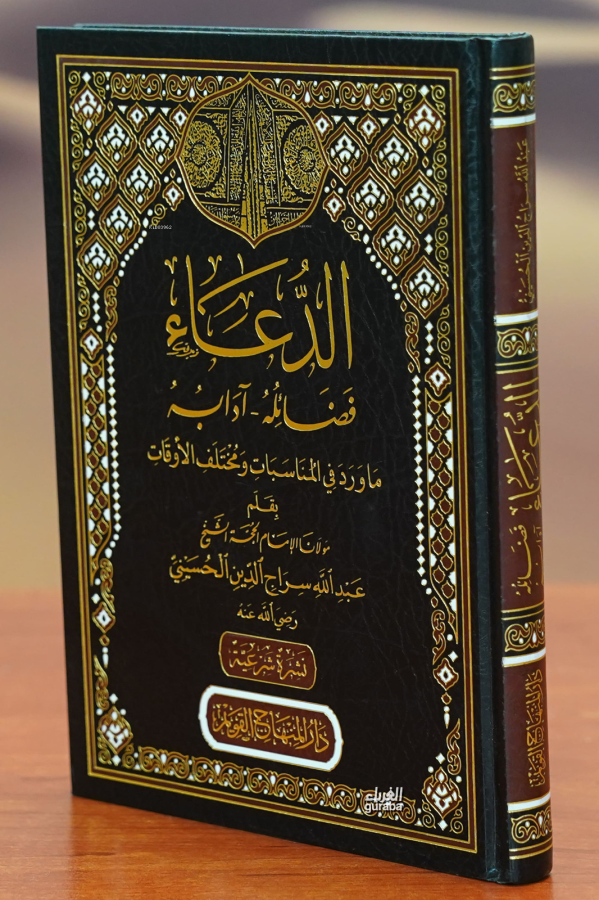 الدُّعَاء
فَضَائِلُهُ - آدَابُهُ
مَا وَرَدَ فِي المُنَاسَبَاتِ وَمُخْتَلَفِ الأَوْقَاتِ
بِقَلَم
مولانا الإمام الحجة الشيخ
عَبْدُ اللَّهِ سِرَاجُ الدِّينِ الْحُسَيْنِيّ
رَضِيَ اللَّه عَنْهُ
نَشْرَة شَرْعِيَّة
دَارُ المِنْهَاجِ القَوِيم
الغرباء
guraba
عَبْدُ اللَّهِ سِرَاجُ الدِّينِ الْحُسَيْنِيّ
الدُّعَاء
فَضَائِلُهُ
آدَابُهُ
دَارُ المِنْهَاجِ القَوِيم